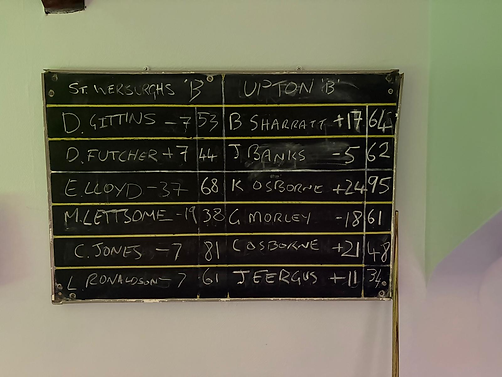 ST. WERBURGHS 'B' UPTON 'B'
D. GITTINS -7 53 B SHARRATT +17 64
D. FUTCHER +7 44 J. BANKS -5 62
E. LLOYD -37 68 K OSBORNE +24 95
M. LETTSOME -19 38 G MORLEY -18 61
C. JONES -7 81 C OSBORNE +21 48
L. RONALDSON -7 61 J FERGUS +11 34